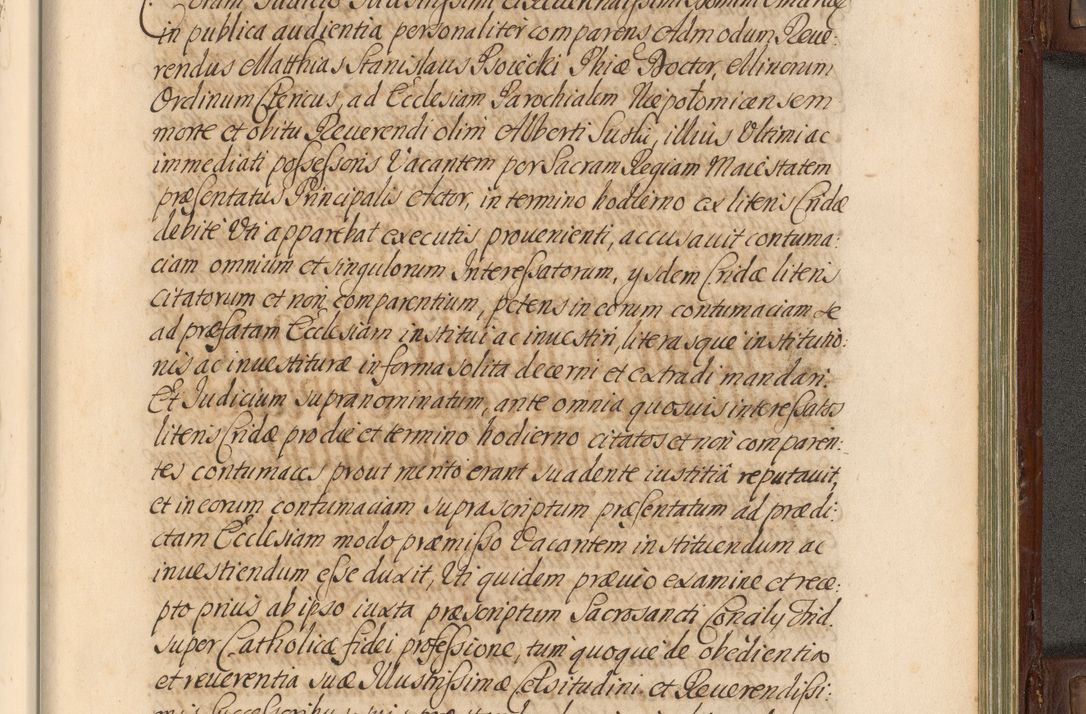 Coram Judicio Illustrissimi et Reverendissimi Domini
in publica audientia personaliter comparens Admodum Reve:
rendus Matthias Stanislaus Psoiecki Phiæ Doctor, Minorum
Ordinum Clericus, ad Ecclesiam Parochialem Niepołomicensem
morte et obitu Reverendi olim Alberti Suski, illius Ultimi ac
immediati possessoris Vacantem per Sacram Regiam Maiestatem
præsentatus Principalis Actor, in termino hodierno ex literis Cridæ
debite Uti apparebat executis provenienti, accusavit contuma:
ciam omnium et singulorum Interessatorum, ysdem Cridæ literis
citatorum et non comparentium, petens in eorum contumaciam se
ad præfatam Ecclesiam institui ac investiri, literasque institutio:
nis ac investituræ in forma solita decerni et extradi mandari.
Et Judicium supranominatum, ante omnia quosvis interessatos
literis Cridæ pro die et termino hodierno citatos et non comparen:
tes contumaces prout merito erant suadente iustitiâ reputavit,
et in eorum contumaciam suprascriptum præsentatum ad prædi:
ctam Ecclesiam modo præmisso Vacantem instituendum ac
investiendum esse duxit, Uti quidem prævio examine et rece:
pto prius ab ipso iuxta præscriptum Sacrosancti Concily Trid.
super Catholicæ fidei professione, tum quoque de obedientia
et reverentia suæ Illustrissimæ Celsitudini et Reverendissi: